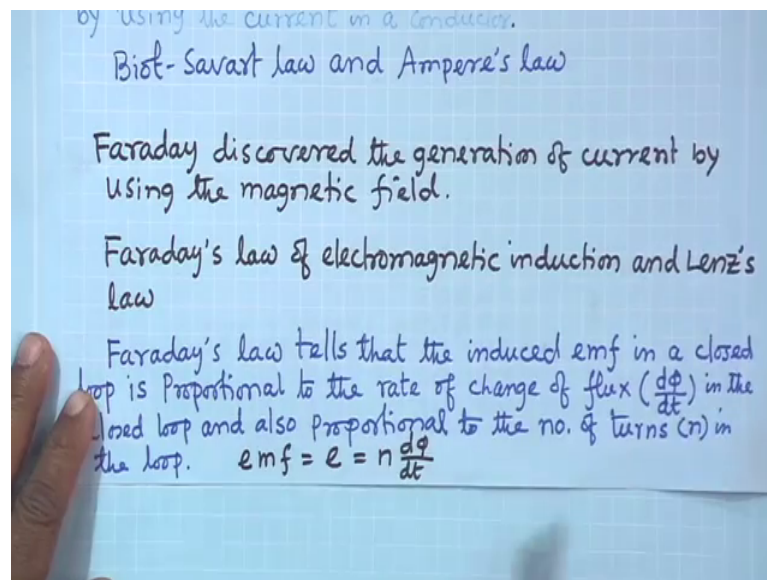 by using the current in a conductor.
Biot-Savart law and Ampere's law
Faraday discovered the generation of current by
using the magnetic field.
Faraday's law of electromagnetic induction and Lenz's
law
Faraday's law tells that the induced emf in a closed
loop is Proportional to the rate of change of flux (dφ/dt) in the
closed loop and also proportional to the no. of turns (n) in
the loop. emf = e = n dφ/dt